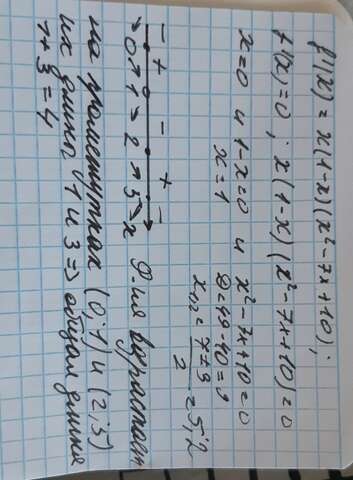 f'(x) = x(1-x)(x²-7x+10);
f'(x)=0; x(1-x)(x²-7x+10)=0
x=0 и 1-x=0 и x²-7x+10=0
x=1 D=49-40=9
x₁,₂ = (7±3)/2 = 5; 2
- + - + -
0 1 2 5 x Ф-ия возрастает
на промежутках (0;1) и (2;5)
их длина 1 и 3 => общая длина
1+3=4